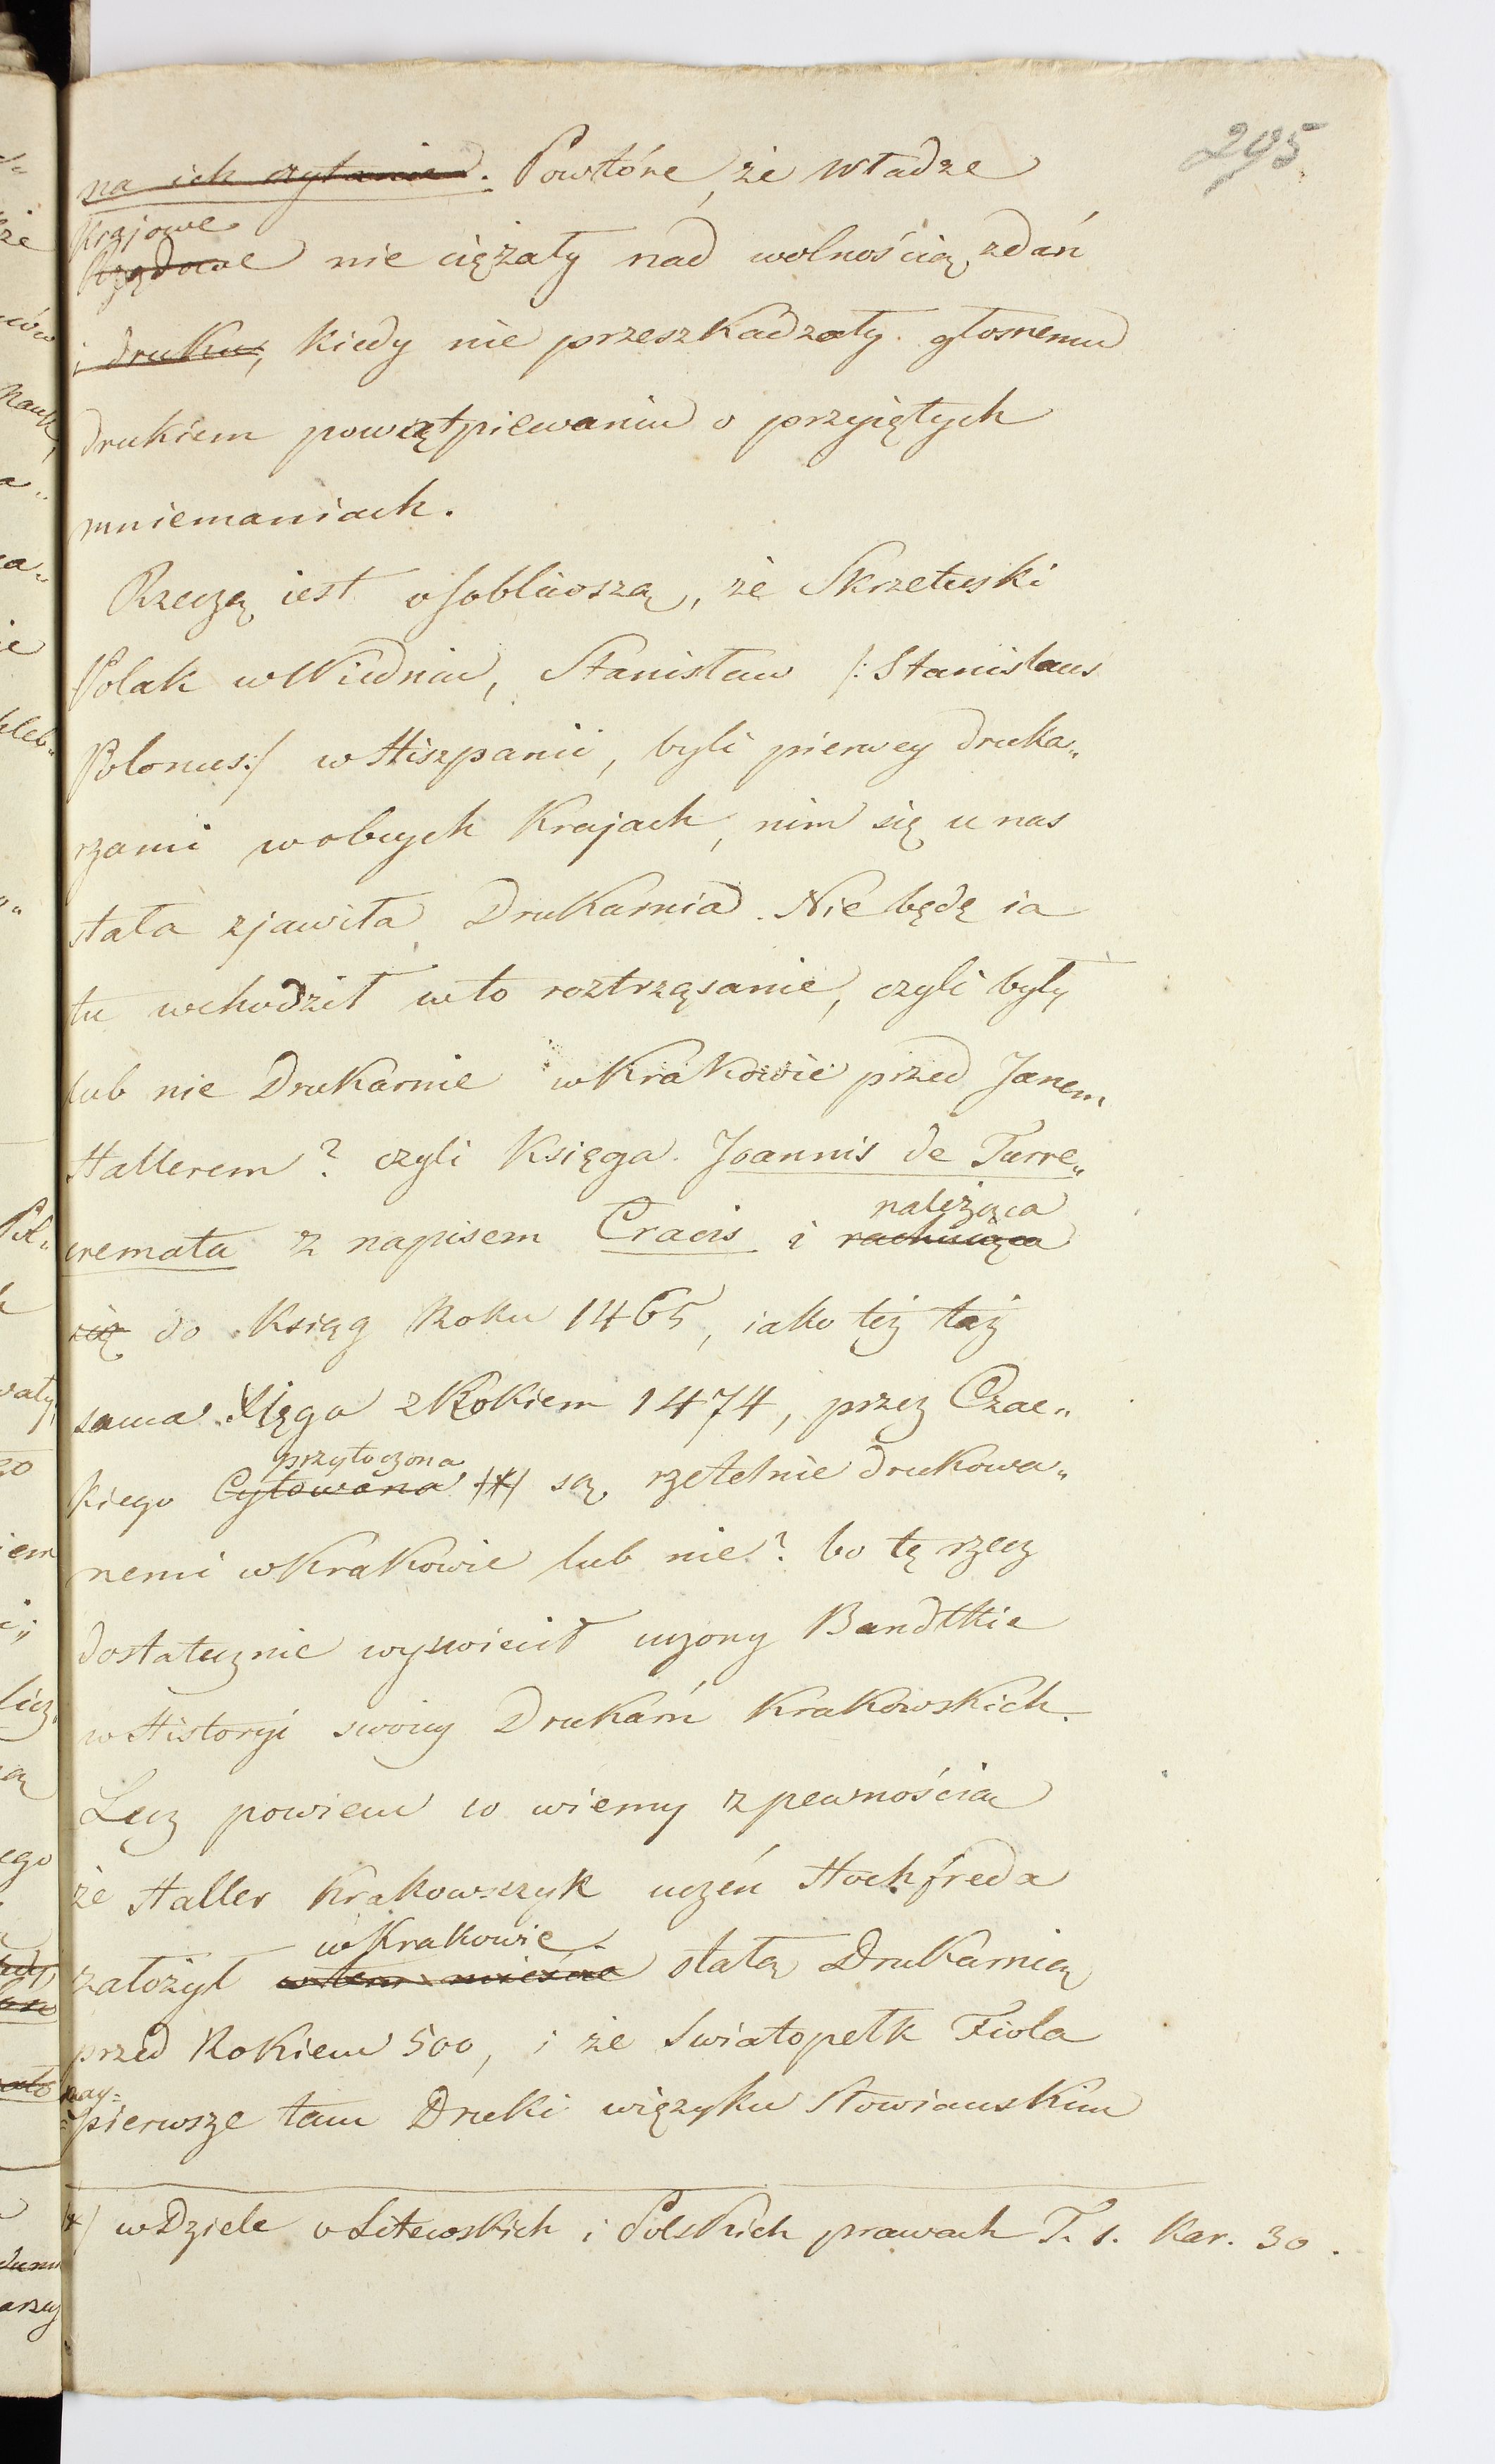 295
na ich czytanie. Powtóre, że władze
Krajowe
Rządowe nie ciężały nad wolnością zdań
i druku, kiedy nie przeszkadzały głosnemu
drukiem powątpiewaniu o przyiętych
mniemaniach.
Rzeczą iest osobliwszą, że Skrzetuski
Polak w Wiedniu, Stanisław /: Stanislaus
Polonus:/ w Hiszpanii, byli pierwey druka„
rzami w obcych Krajach, nim się u nas
stała zjawiła Drukarnia. Nie będę ia
tu wchodził w to roztrząsanie, czyli były
lub nie Drukarnie w Krakowie przed Janem
Hallerem? czyli Księga Joannis de Turre„
cremata z napisem Cracis i rachuiąca
należąca
się do Ksiąg Roku 1465, iako też taż
sama Xięga z Rokiem 1474, przez Czac„
przytoczona
kiego Cytowana /*/ są rzetelnie drukowa„
nemi w Krakowie lub nie? bo tę rzecz
dostatecznie wyświecił uczony Bandtkie
w Historyi swoiey Drukarń Krakowskich.
Lecz powiem co wiemy z pewnością
że Haller Krakowczyk uczeń Hochfreda
w Krakowie
założył w tem mieście stałą Drukarnią
przed Rokiem 500, i że Swiatopełk Fiola
nay=
=pierwsze tam Druki w ięzyku Słowianskim
*/ w Dziele o Litewskich i Polskich prawach T. 1. Kar. 30.